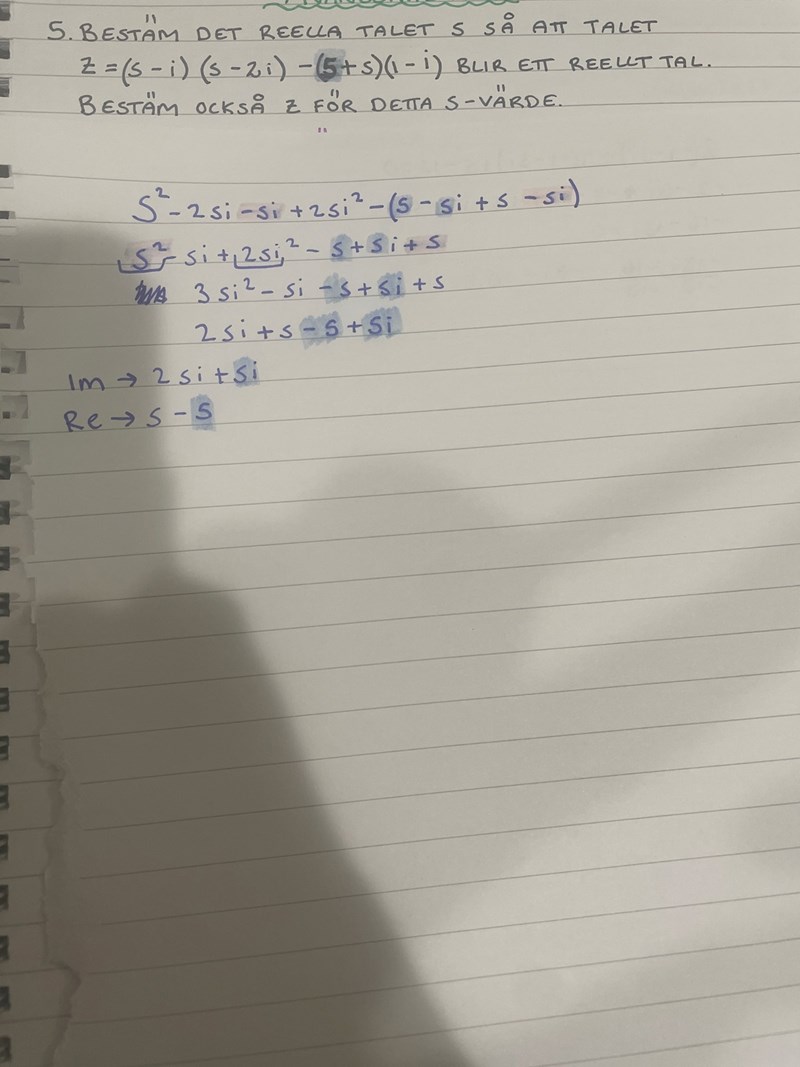 5. BESTÄM DET REELLA TALET S SÅ ATT TALET
Z = (s - i) (s - 2i) - (5 + s)(1 - i) BLIR ETT REELLT TAL.
BESTÄM OCKSÅ Z FÖR DETTA S-VÄRDE.
S² - 2si - si + 2si² - (5 - 5i + s - si)
s² - si + 2si² - 5 + 5i + s
3si² - si - 5 + 5i + s
2si + s - 5 + 5i
Im → 2si + 5i
Re → s - 5